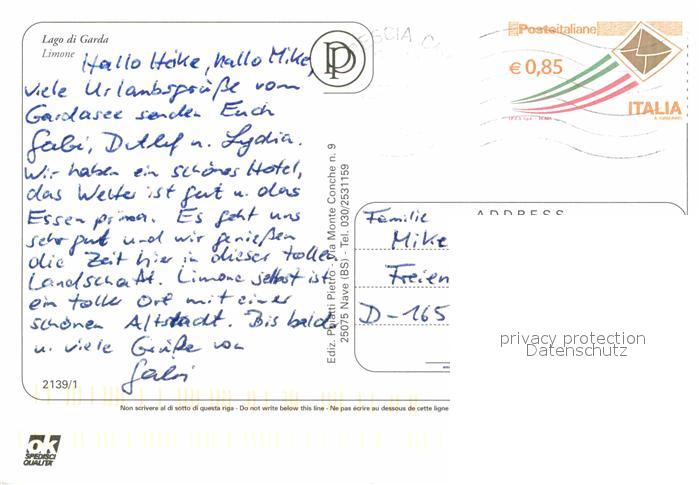 Lago di Garda
Limone
Hallo Heike, hallo Mike,
viele Urlaubsgrüße vom
Gardasee senden Euch
Gabi, Detlef u. Lydia.
Wir haben ein schönes Hotel,
das Wetter ist gut u. das
Essen prima. Es geht uns
sehr gut und wir genießen
die Zeit hier in dieser tollen
Landschaft. Limone selbst ist
ein toller Ort mit einer
schönen Altstadt. Bis bald
u. viele Grüße von
Gabi
2139/1
Ediz. Polatti Pietro - Via Monte Conche n. 9
25075 Nave (BS) - Tel. 030/2531159
PP
BRESCIA
Posteitaliane
€ 0,85
ITALIA
ADDRESS
Familie
Mike
Freien
D-165
privacy protection
Datenschutz
Non scrivere al di sotto di questa riga - Do not write below this line - Ne pas écrire au dessous de cette ligne
ok
SPEDISCI
QUALITÀ